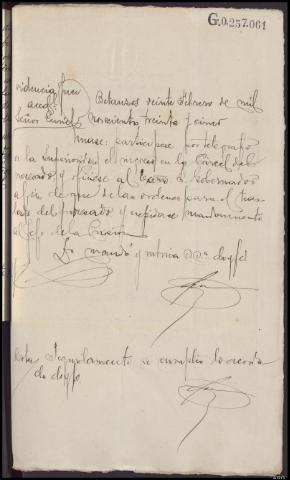 G.0.257.061
Providencia Juez Betanzos veinte Febrero de mil
acctal.
Señor novecientos treinta y cinco
Unase: participese por telegrafo
a la Superioridad el ingreso en la Carcel del
procesado y oficiese al Gobernador
a fin de que de las ordenes para el tras
lado del procesado y expidase mandamiento
al Jefe de la Prision
Lo mandó y rubrica doy fé
Nota Seguidamente se cumplió lo acorda
do doy fe